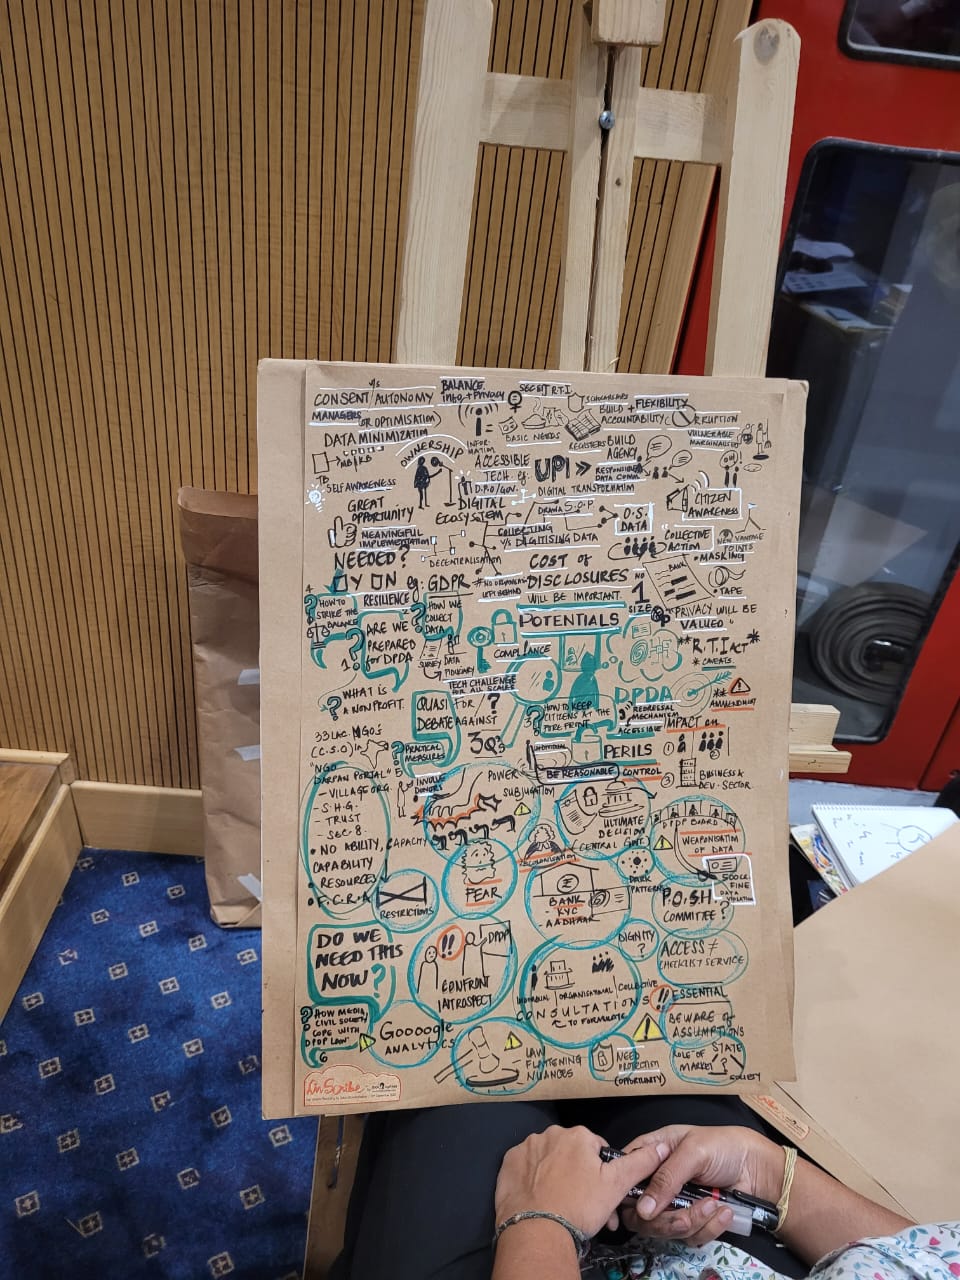 CONSENT v/s AUTONOMY
MANAGERS (OR OPTIMISATION)
DATA MINIMIZATION
BALANCE
Info + Privacy
SEC 8(1) R.T.I.
BUILD + FLEXIBILITY
ACCOUNTABILITY
BASIC NEEDS
REGISTERS
BUILD
AGENCY
VULNERABLE
MARGINALISED
OWNERSHIP
SELF AWARENESS
ACCESSIBLE
TECH eg:
UPI >>
RESPONSIBLE
DATA COMM.
DIGITAL TRANSFORMATION
GREAT
OPPORTUNITY
DIGITAL
ECOSYSTEM
DRAW S.O.P
O.S.
DATA
CITIZEN
AWARENESS
MEANINGFUL
IMPLEMENTATION
COLLECTING
v/s DIGITISING DATA
COLLECTIVE
ACTION
NEW VANTAGE
POINTS
MASKING
DECENTRALISATION
NEEDED?
Y N eg: GDPR
COST OF
DISCLOSURES
WILL BE IMPORTANT
BANK
TAPE
NO
1
SIZE
"PRIVACY WILL BE
VALUED"
RESILIENCE
HOW TO
STRIKE THE
BALANCE
HOW WE
COLLECT
DATA
POTENTIALS
ARE WE
PREPARED
for DPDA
1.
SURVEY
DATA
FIDUCIARY
COMPLIANCE
**R.T.I ACT*
* CAVEATS
TECH CHALLENGE
FOR ALL SCALES
DPDA
** AMMENDMENT
WHAT IS
A NONPROFIT.
QUASI FOR /
DEBATE AGAINST
?
HOW TO KEEP
CITIZENS AT THE
FORE FRONT
REDRESSAL
MECHANISM
ACCESSIBLE
IMPACT on
33 LAC NGO's
(C.S.O) in
PRACTICAL
MEASURES
5
3Q's
INDIVIDUAL
PERILS
1
2
3
BUSINESS &
DEV. SECTOR
"NGO
DARPAN PORTAL"
- VILLAGE ORG.
- S.H.G.
- TRUST
- SEC 8.
• NO ABILITY, CAPACITY
CAPABILITY
RESOURCES
• F.C.R.A
INVOLVE
DONORS
POWER
SUBJUGATION
BE REASONABLE
CONTROL
ULTIMATE
DECISION
CENTRAL GOVT.
DPDP BOARD
WEAPONISATION
OF DATA
500 CR.
FINE
DATA
VIOLATION
FEAR
RESTRICTIONS
DARK
PATTERNS
BANK
KYC
AADHAAR
P.O.S.H
COMMITTEE?
DO WE
NEED THIS
NOW?
!!
DPDP
CONFRONT
INTROSPECT
DIGNITY
?
ACCESS ≠
CHECKLIST SERVICE
INDIVIDUAL | ORGANISATIONAL | COLLECTIVE
CONSULTATIONS
TO FORMULATE
!! ESSENTIAL
BEWARE of
ASSUMPTIONS
HOW MEDIA,
CIVIL SOCIETY
COPE WITH
DPDP LAW
6
Goooogle
ANALYTICS
LAW
FLATTENING
NUANCES
NEED
PROTECTION
(OPPORTUNITY)
ROLE OF STATE
MARKET ?
SOCIETY
InScribe